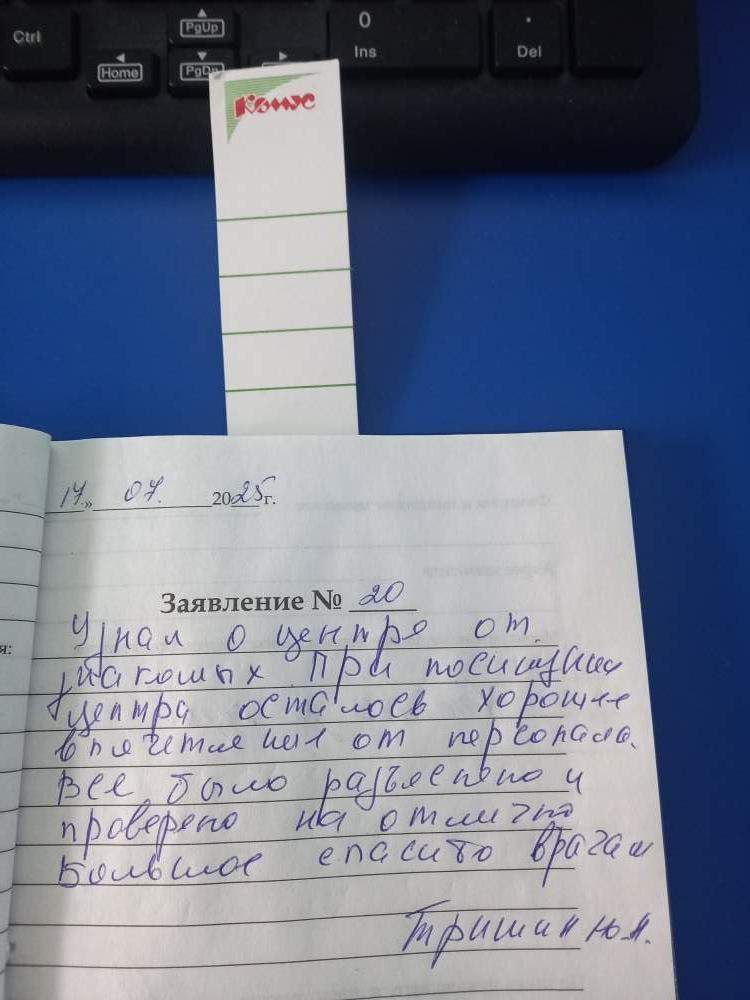 Ctrl
PgUp
Home
PgDn
0
Ins
.
Del
Комус
17.» 07. 2025г.
я:
Заявление № 20
Узнал о центре от.
знакомых При посищении
центра осталось хорошее
впечетления от персонала.
Все было разъяснено и
проверено на отлично
Большое спасибо врачам
Тришин Ю.А.